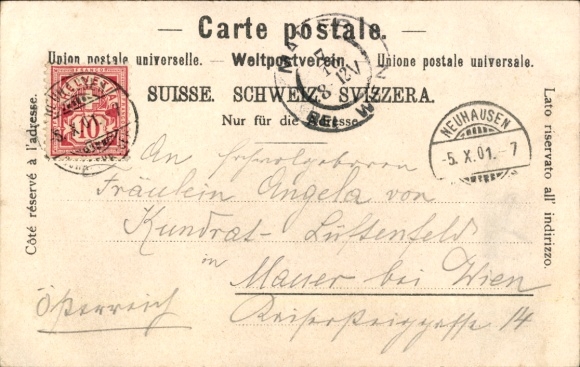 Carte postale.
Union postale universelle. — Weltpostverein. — Unione postale universale.
SUISSE. SCHWEIZ. SVIZZERA.
Nur für die Adresse.
Côté réservé à l'adresse.
Lato riservato all' indirizzo.
FRANCO
10
NEUHAUSEN
-5. X. 01. - 7
MAUER BEI
An
Fräulein Angela von
Kundrat-Lüftenfeld
in Mauer bei Wien
Österreich
14